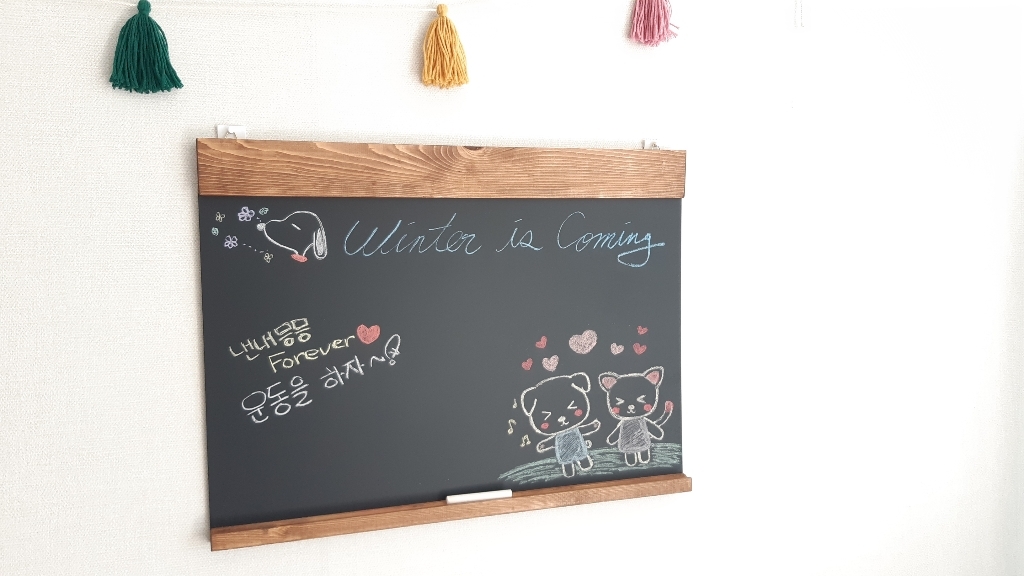 Winter is Coming
낸내뭉뭉
Forever
운동을 하자~!